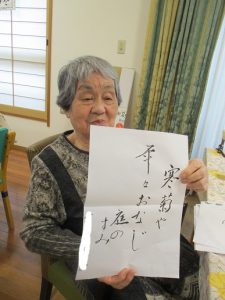 寒菊や
年々おなじ
庭のすみ